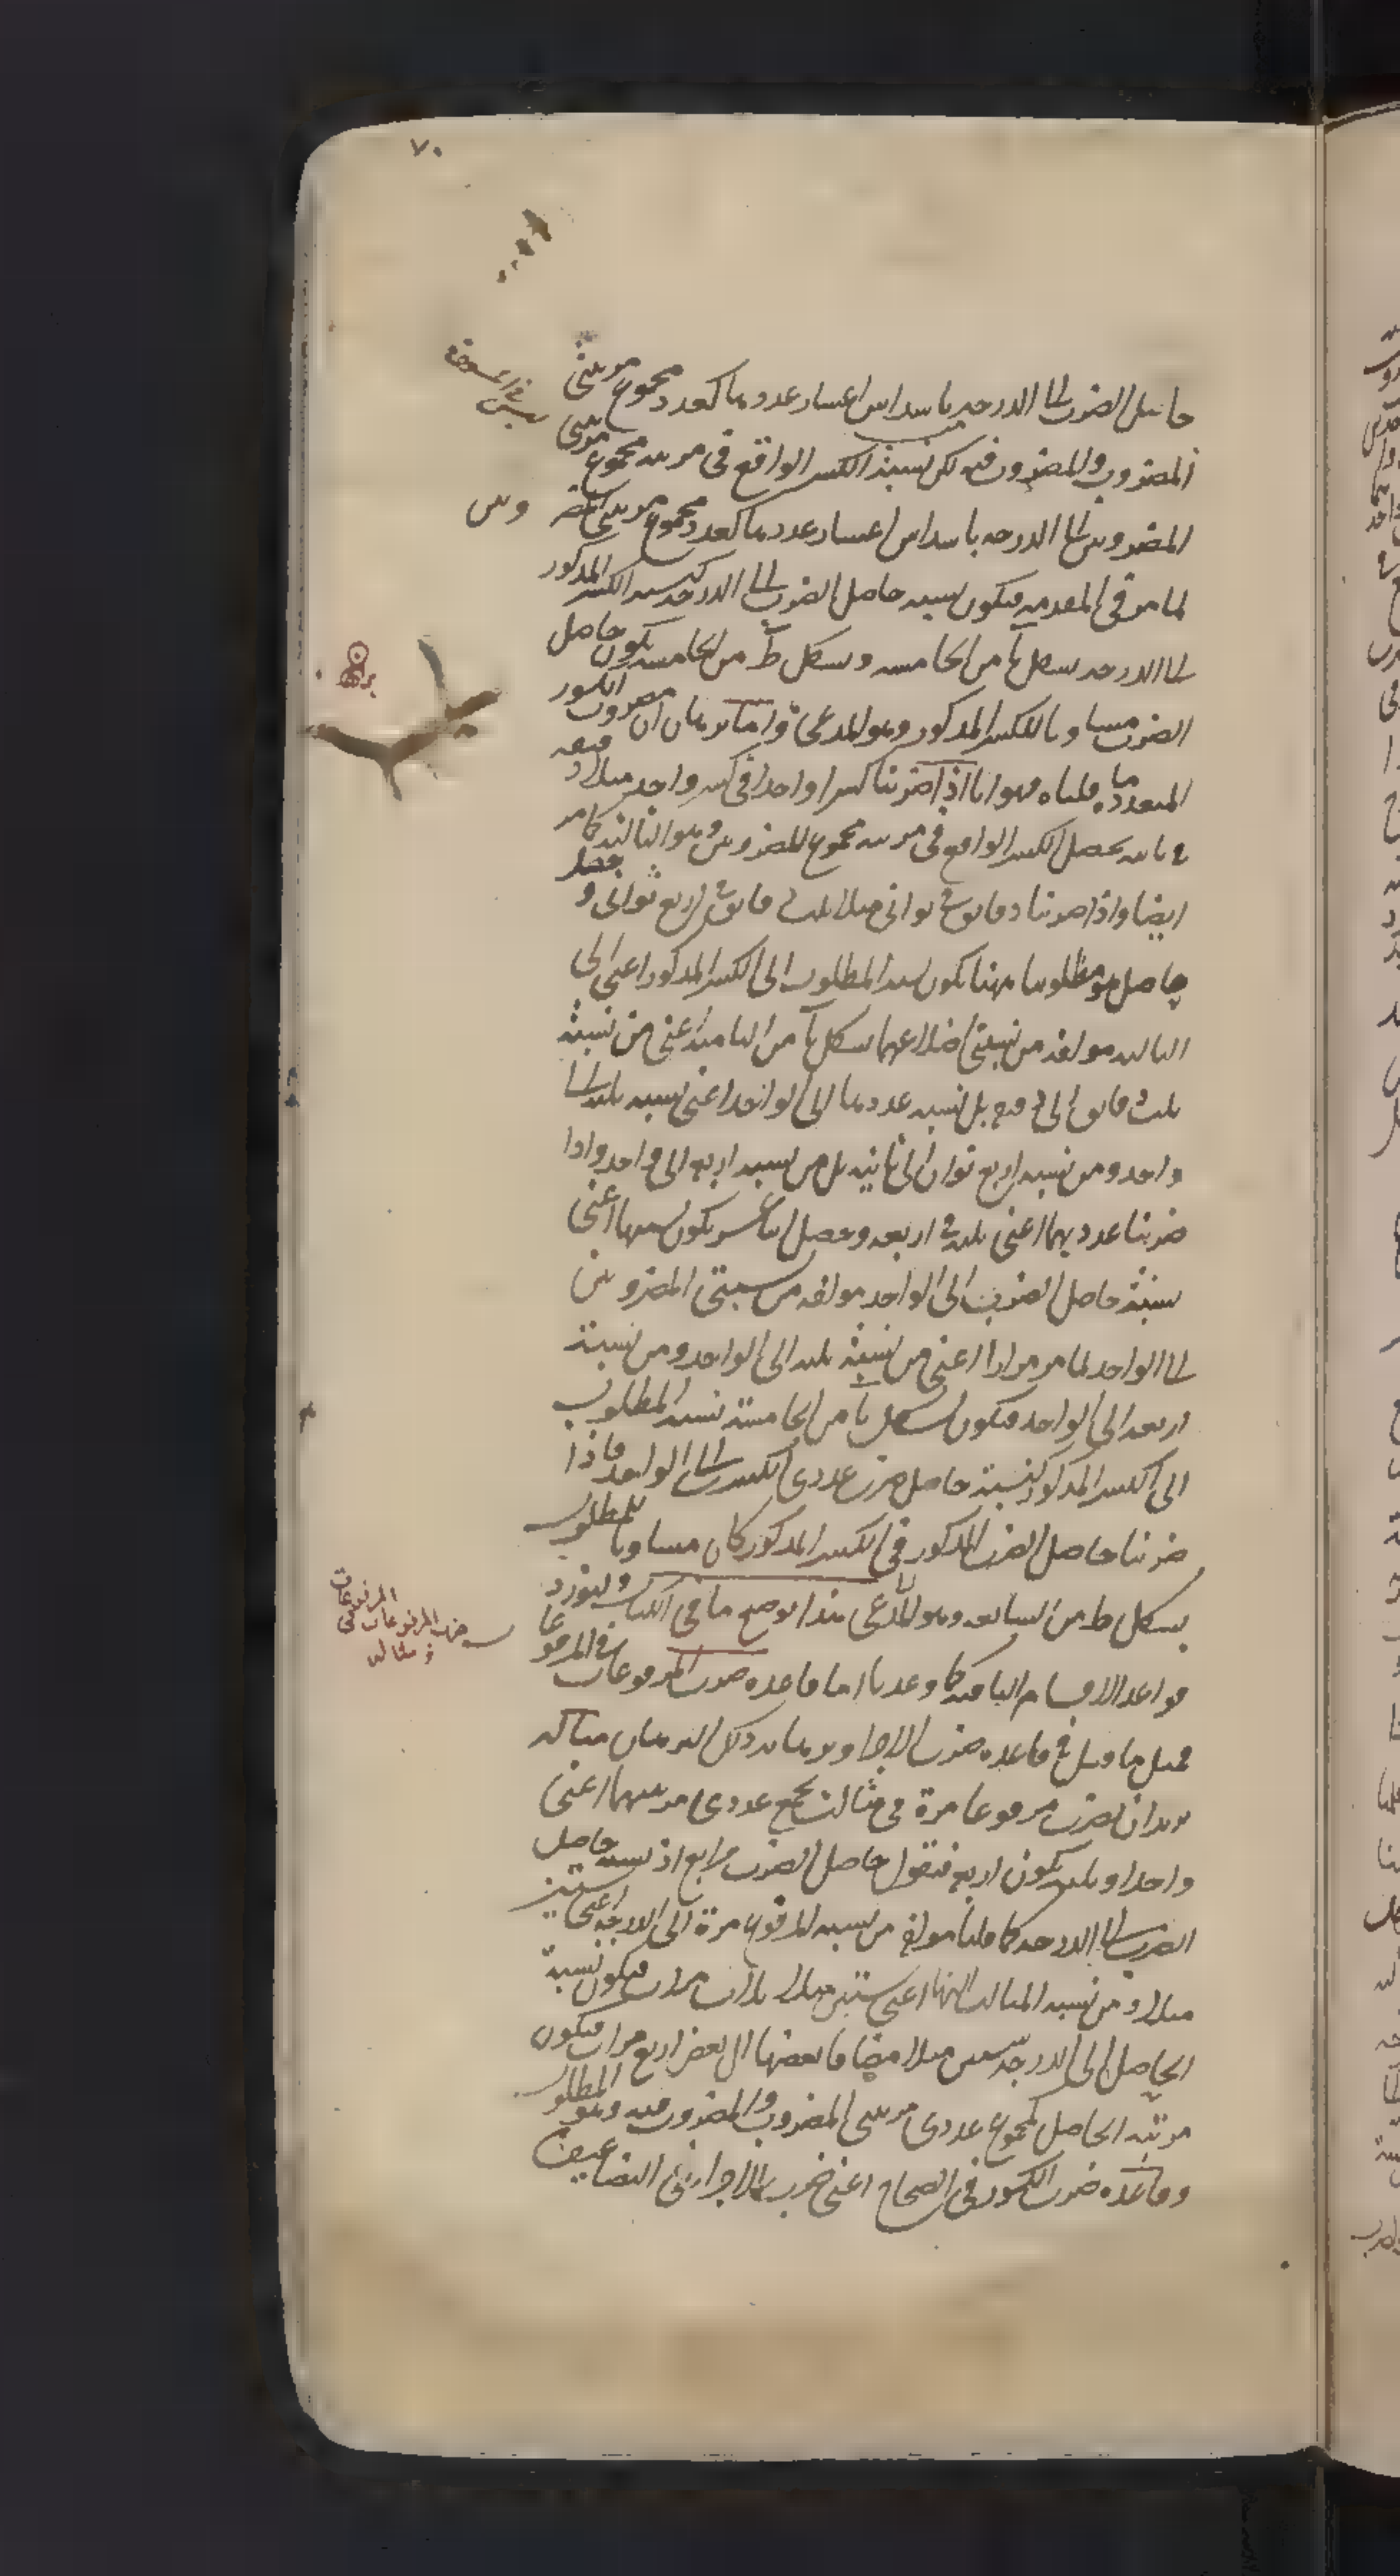 ٧٠
حاصل الضرب الى الدرجه باسداس اعشار عدد ما كعدد مجموع مرتبتى
المضروب والمضروب فيه لكن نسبة الكسر الواقع فى مرتبه مجموع مرتبتى
المضروبين الى الدرجه باسداس اعشار عدد ما كعدد مجموع مرتبتى
لما مر فى المقدمه فيكون نسبه حاصل الضرب الى الدرجه كنسبه الكسر المذكور
الى الدرجه بشكل يا من الخامسه وبشكل ط من الخامسه يكون حاصل
الضرب مساويا للكسر المذكور وهو المدعى واما برهان ان مضروب الكسور
المتعدده ما قلناه فهو انا اذا ضربنا كسرا واحدا فى كسر واحد مثلا دقيقه
فى ثانيه يحصل الكسر الواقع فى مرتبه مجموع المضروبين وهو الثالثه كما مر
ايضا واذا ضربنا دقايق فى ثوانى مثلا ثلث دقايق فى اربع ثوانى و
حاصل هو مطلوبنا مهنا يكون نسبة المطلوب الى الكسر المذكور اعنى الى
الثالثه مولفه من نسبتى اضلاعهما بشكل يا من الثامنه اعنى من نسبة
ثلث دقايق الى دقيقه بل نسبه عددها الى الواحد اعنى نسبه ثلثه الى
واحد ومن نسبه اربع ثوان الى ثانيه بل من نسبه اربعه الى واحد واذا
ضربنا عدديهما اعنى ثلثه فى اربعه وحصل اثنا عشر يكون نسبتها اعنى
نسبة حاصل الضرب الى الواحد مولفه من نسبتى المضروبين
الى الواحد لما مر مرارا اعنى من نسبة ثلثه الى الواحد ومن نسبة
اربعه الى الواحد فيكون بشكل يا من الخامسة نسبه المطلوب
الى الكسر المذكور كنسبة حاصل ضرب عددى الكسرين الى الواحد فاذا
ضربنا حاصل الضرب المذكور فى الكسر المذكور كان مساويا للمطلوب
بشكل ط من السابعه وهو المدعى هذا توضيح ما فى الكتاب ولنورد
قواعد الاقسام الباقيه كما وعدنا اما قاعده ضرب المرفوعات فى المرفوعات
فمثل ما قيل فى قاعده ضرب الاجزا وبرهانه ذلك البرهان مثاله
نريد ان نضرب مرفوعا مرة فى مثالث نجمع عددى مرتبتهما اعنى
واحدا وثلثه يكون اربعه فنقول حاصل الضرب مرابع اذ نسبه حاصل
الضرب الى الدرجه كما قلنا مولفه من نسبه المرفوع مرة الى الدرجه اعنى ستين
مثلا ومن نسبه المثالث اليها اعنى ستين مثلا ثلث مرات فيكون نسبة
الحاصل الى الدرجه ستين مثلا مضافا بعضها الى بعض اربع مرات فيكون
مرتبه الحاصل كمجموع عددى مرتبتى المضروب والمضروب فيه وهو المطلوب
وقاعده ضرب الكسور فى الصحاح اعنى ضرب الاجزا فى التضاعيف
برهان
ضرب المرفوعات فى
المرفوعات
و مثاله